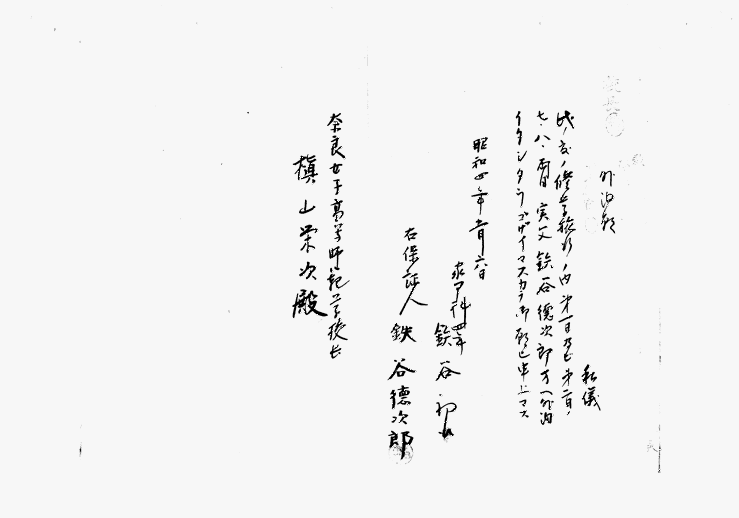 外泊願
私儀
此ノ度ノ修学旅行ノ内第一日乃至第二日ノ
七、八、両日実父鉄谷徳次郎方ヘ外泊
イタシタウゴザイマスカラ御願ヒ申上マス
昭和四年 月六日
家事科 鉄谷
右保証人 鉄谷徳次郎
奈良女子高等師範学校長
槇山栄次殿